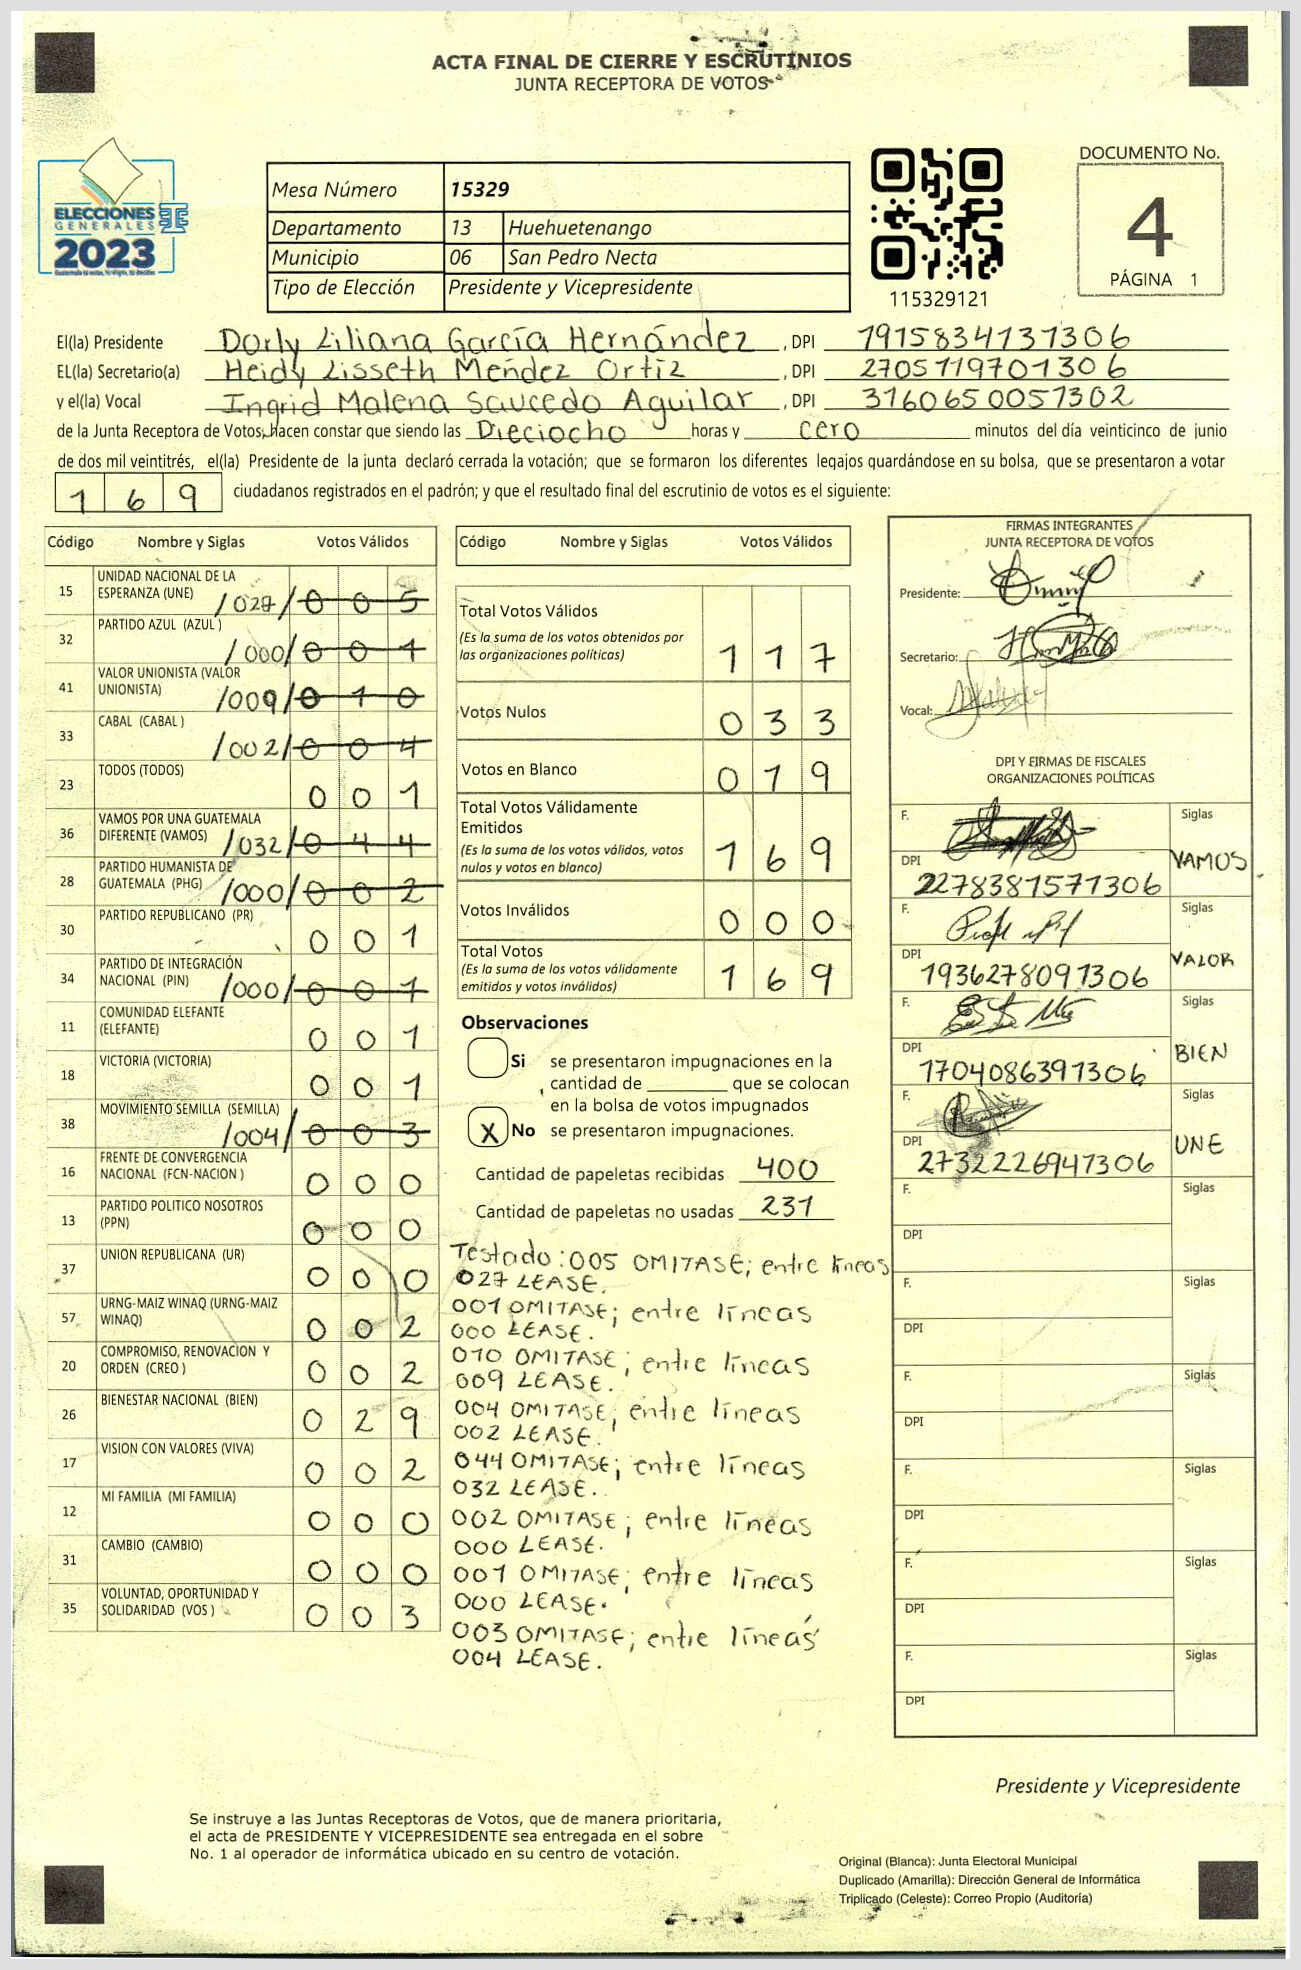 ACTA FINAL DE CIERRE Y ESCRUTINIOS
JUNTA RECEPTORA DE VOTOS
ELECCIONES
GENERALES
2023
Mesa Número 15329
Departamento 13 Huehuetenango
Municipio 06 San Pedro Necta
Tipo de Elección Presidente y Vicepresidente
115329121
DOCUMENTO No.
4
PÁGINA 1
El(la) Presidente Dorly Liliana García Hernández, DPI 1915834131306
EL(la) Secretario(a) Heidy Lisseth Méndez Ortíz, DPI 2705119701306
y el(la) Vocal Ingrid Malena Saucedo Aguilar, DPI 3160650051302
de la Junta Receptora de Votos, hacen constar que siendo las Dieciocho horas y cero minutos del día veinticinco de junio
de dos mil veintitrés, el(la) Presidente de la junta declaró cerrada la votación; que se formaron los diferentes legajos quardándose en su bolsa, que se presentaron a votar
169 ciudadanos registrados en el padrón; y que el resultado final del escrutinio de votos es el siguiente:
Código Nombre y Siglas Votos Válidos
15 UNIDAD NACIONAL DE LA
ESPERANZA (UNE) /027/ 005
32 PARTIDO AZUL (AZUL )
/000/ 001
41 VALOR UNIONISTA (VALOR
UNIONISTA) /009/ 010
33 CABAL (CABAL )
/002/ 004
23 TODOS (TODOS)
001
36 VAMOS POR UNA GUATEMALA
DIFERENTE (VAMOS) /032/ 044
28 PARTIDO HUMANISTA DE
GUATEMALA (PHG) /000/ 002
30 PARTIDO REPUBLICANO (PR)
001
34 PARTIDO DE INTEGRACIÓN
NACIONAL (PIN) /000/ 001
11 COMUNIDAD ELEFANTE
(ELEFANTE) 001
18 VICTORIA (VICTORIA)
001
38 MOVIMIENTO SEMILLA (SEMILLA)
/004/ 003
16 FRENTE DE CONVERGENCIA
NACIONAL (FCN-NACION ) 000
13 PARTIDO POLITICO NOSOTROS
(PPN) 000
37 UNION REPUBLICANA (UR)
000
57 URNG-MAIZ WINAQ (URNG-MAIZ
WINAQ) 002
20 COMPROMISO, RENOVACION Y
ORDEN (CREO ) 002
26 BIENESTAR NACIONAL (BIEN)
029
17 VISION CON VALORES (VIVA)
002
12 MI FAMILIA (MI FAMILIA)
000
31 CAMBIO (CAMBIO)
000
35 VOLUNTAD, OPORTUNIDAD Y
SOLIDARIDAD (VOS ) 003
Código Nombre y Siglas Votos Válidos
Total Votos Válidos
(Es la suma de los votos obtenidos por
las organizaciones políticas) 117
Votos Nulos 033
Votos en Blanco 019
Total Votos Válidamente
Emitidos
(Es la suma de los votos válidos, votos
nulos y votos en blanco) 169
Votos Inválidos 000
Total Votos
(Es la suma de los votos válidamente
emitidos y votos inválidos) 169
Observaciones
Si se presentaron impugnaciones en la
cantidad de ________ que se colocan
en la bolsa de votos impugnados
X No se presentaron impugnaciones.
Cantidad de papeletas recibidas 400
Cantidad de papeletas no usadas 231
Testado: 005 OMITASE; entre líneas
027 LEASE.
001 OMITASE; entre líneas
000 LEASE.
010 OMITASE; entre líneas
009 LEASE.
004 OMITASE; entre líneas
002 LEASE.
044 OMITASE; entre líneas
032 LEASE.
002 OMITASE; entre líneas
000 LEASE.
001 OMITASE; entre líneas
000 LEASE.
003 OMITASE; entre líneas
004 LEASE.
FIRMAS INTEGRANTES
JUNTA RECEPTORA DE VOTOS
Presidente:
Secretario:
Vocal:
DPI Y FIRMAS DE FISCALES
ORGANIZACIONES POLÍTICAS
F. Siglas
VAMOS
DPI 2278381571306
F. Siglas
VALOR
DPI 1936278091306
F. Siglas
BIEN
DPI 1704086391306
F. Siglas
UNE
DPI 2732226941306
F. Siglas
DPI
F. Siglas
DPI
F. Siglas
DPI
F. Siglas
DPI
F. Siglas
DPI
F. Siglas
DPI
Presidente y Vicepresidente
Se instruye a las Juntas Receptoras de Votos, que de manera prioritaria,
el acta de PRESIDENTE Y VICEPRESIDENTE sea entregada en el sobre
No. 1 al operador de informática ubicado en su centro de votación.
Original (Blanca): Junta Electoral Municipal
Duplicado (Amarilla): Dirección General de Informática
Triplicado (Celeste): Correo Propio (Auditoría)